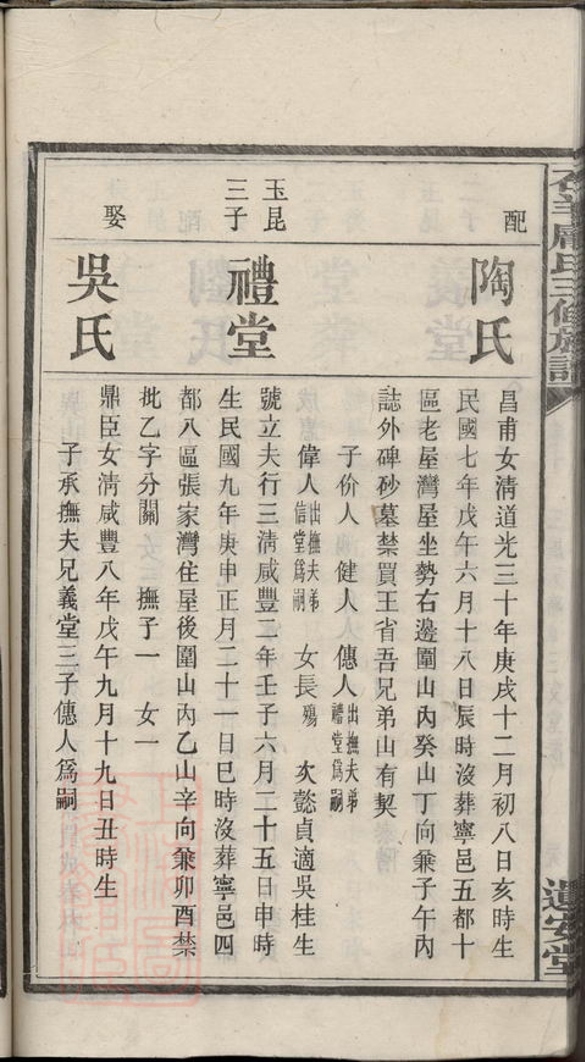 周氏三修族譜
遺安堂
配
陶氏
昌甫女淸道光三十年庚戌十二月初八日亥時生
民國七年戊午六月十八日辰時沒葬寧邑五都十
區老屋灣屋坐勢右邊圍山內癸山丁向兼子午內
誌外碑砂墓禁買王省吾兄弟山有契
子价人 健人 僡人出撫夫弟禮堂爲嗣
偉人出撫夫弟信堂爲嗣 女長殤 次懿貞適吳桂生
玉昆
三子
禮堂
號立夫行三淸咸豐二年壬子六月二十五日申時
生民國九年庚申正月二十一日巳時沒葬寧邑四
都八區張家灣住屋後圍山內乙山辛向兼卯酉禁
批乙字分關 撫子一 女一
娶
吳氏
鼎臣女淸咸豐八年戊午九月十九日丑時生
子承撫夫兄義堂三子僡人爲嗣